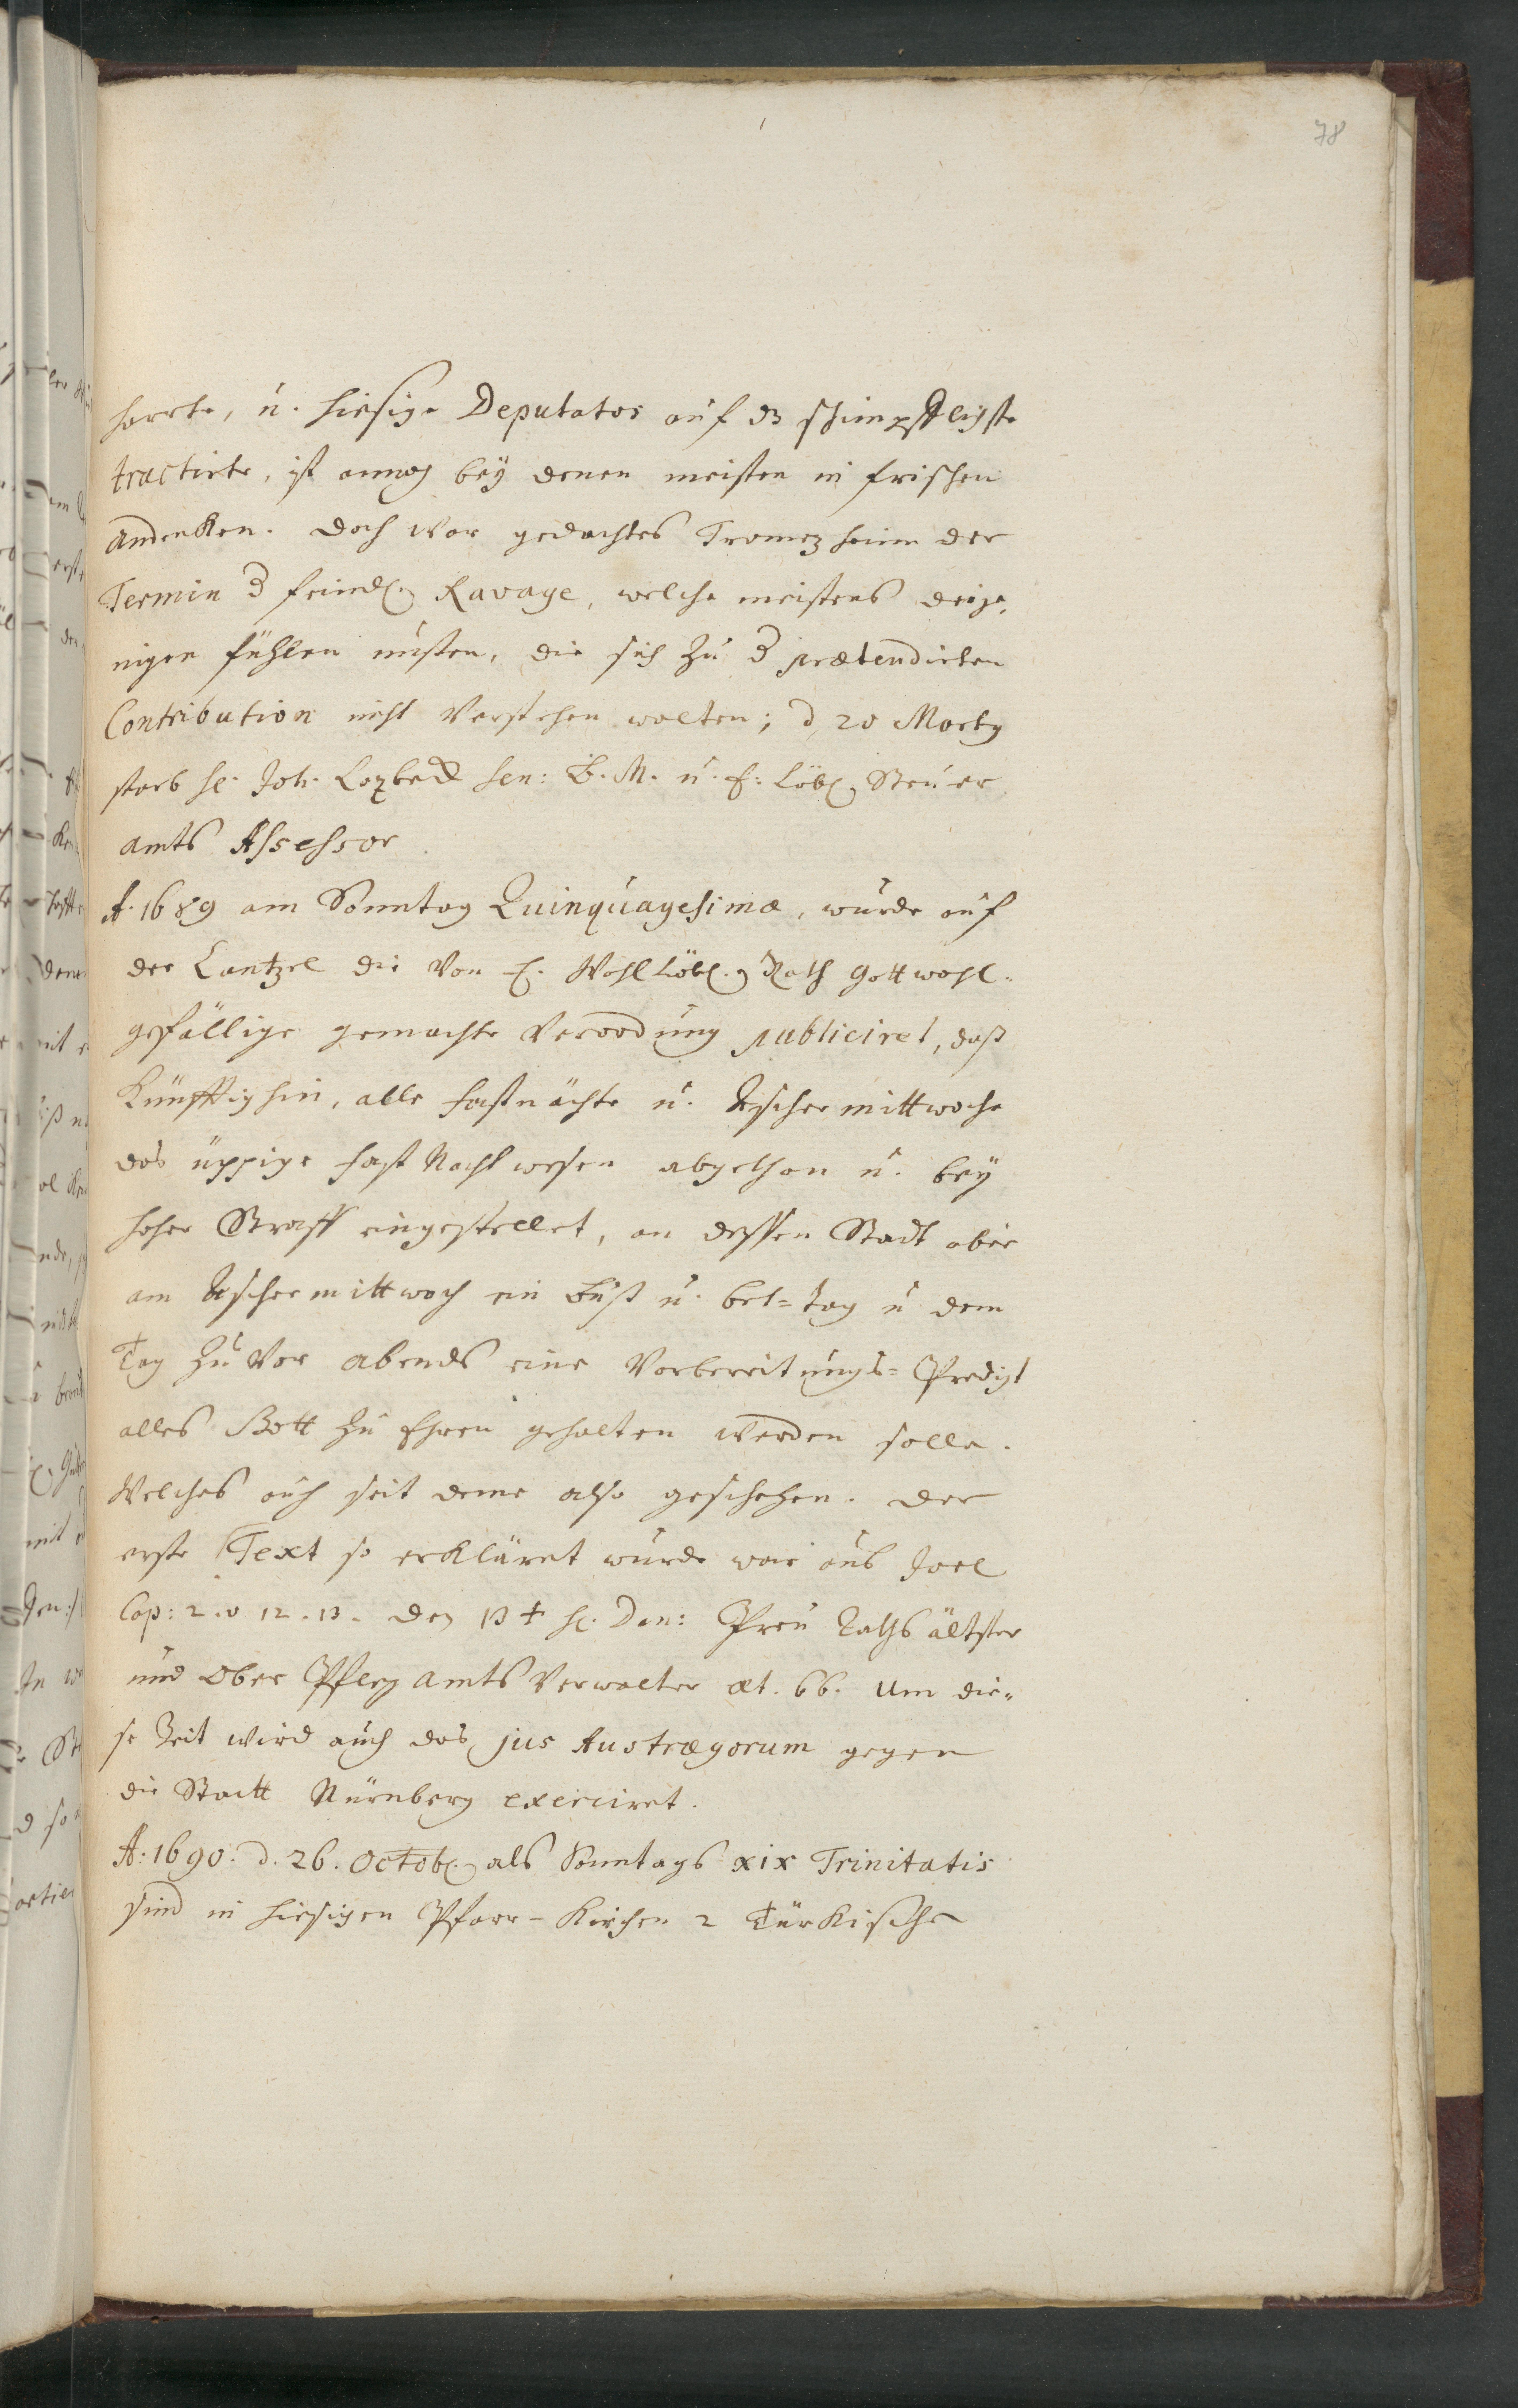 78
harrte, u. hiesige Deputatos auf dz schimpfflichste
tractirte, ist annoch bey denen meisten in frischen
andenken. doch war gedachtes Trometzheim der
Termin d feindl. Ravage, welche meistens dieje,
nigen fühlen musten, die sich zu d prætendirten
Contribution nicht verstehen wolten; d 20 Marty
starb H. Joh. Lozbeck sen: B. M. u. E: Löbl. Steuer
amts Assessor.
A. 1689 am Sonntag Quinquagesimæ, wurde auf
der Cantzel die von E. Wohllöbl. Rath Gott wohl-
gefällige gemachte Verordnung publiciret, daß
künfftighin, alle fastnächte u. Aschermittwoche
das üppige fast Nacht wesen abgethan u. bey
hoher Straff eingestellet, an dessen Stadt aber
am Aschermittwoch ein Buß u. bet=tag u dem
Tag zu vor abends eine Vorbereitungs=Predigt
alles Gott zu Ehren gehalten werden solle.
Welches auch seit deme also geschehen. Der
erste Text so erkläret wurde war aus Joel
Cap: 2. v 12. 13. den 13 † H. Dan: Preu Raths ältster
und Ober Pfleg amts Verwalter æt. 66. Um die„
se Zeit wird auch das jus Austrægorum gegen
die Statt Nürnberg exerciret.
A: 1690. d. 26. Octobr. als Sonntags xix Trinitatis
sind in hiesigen Pfarr-Kirchen 2 Türkische